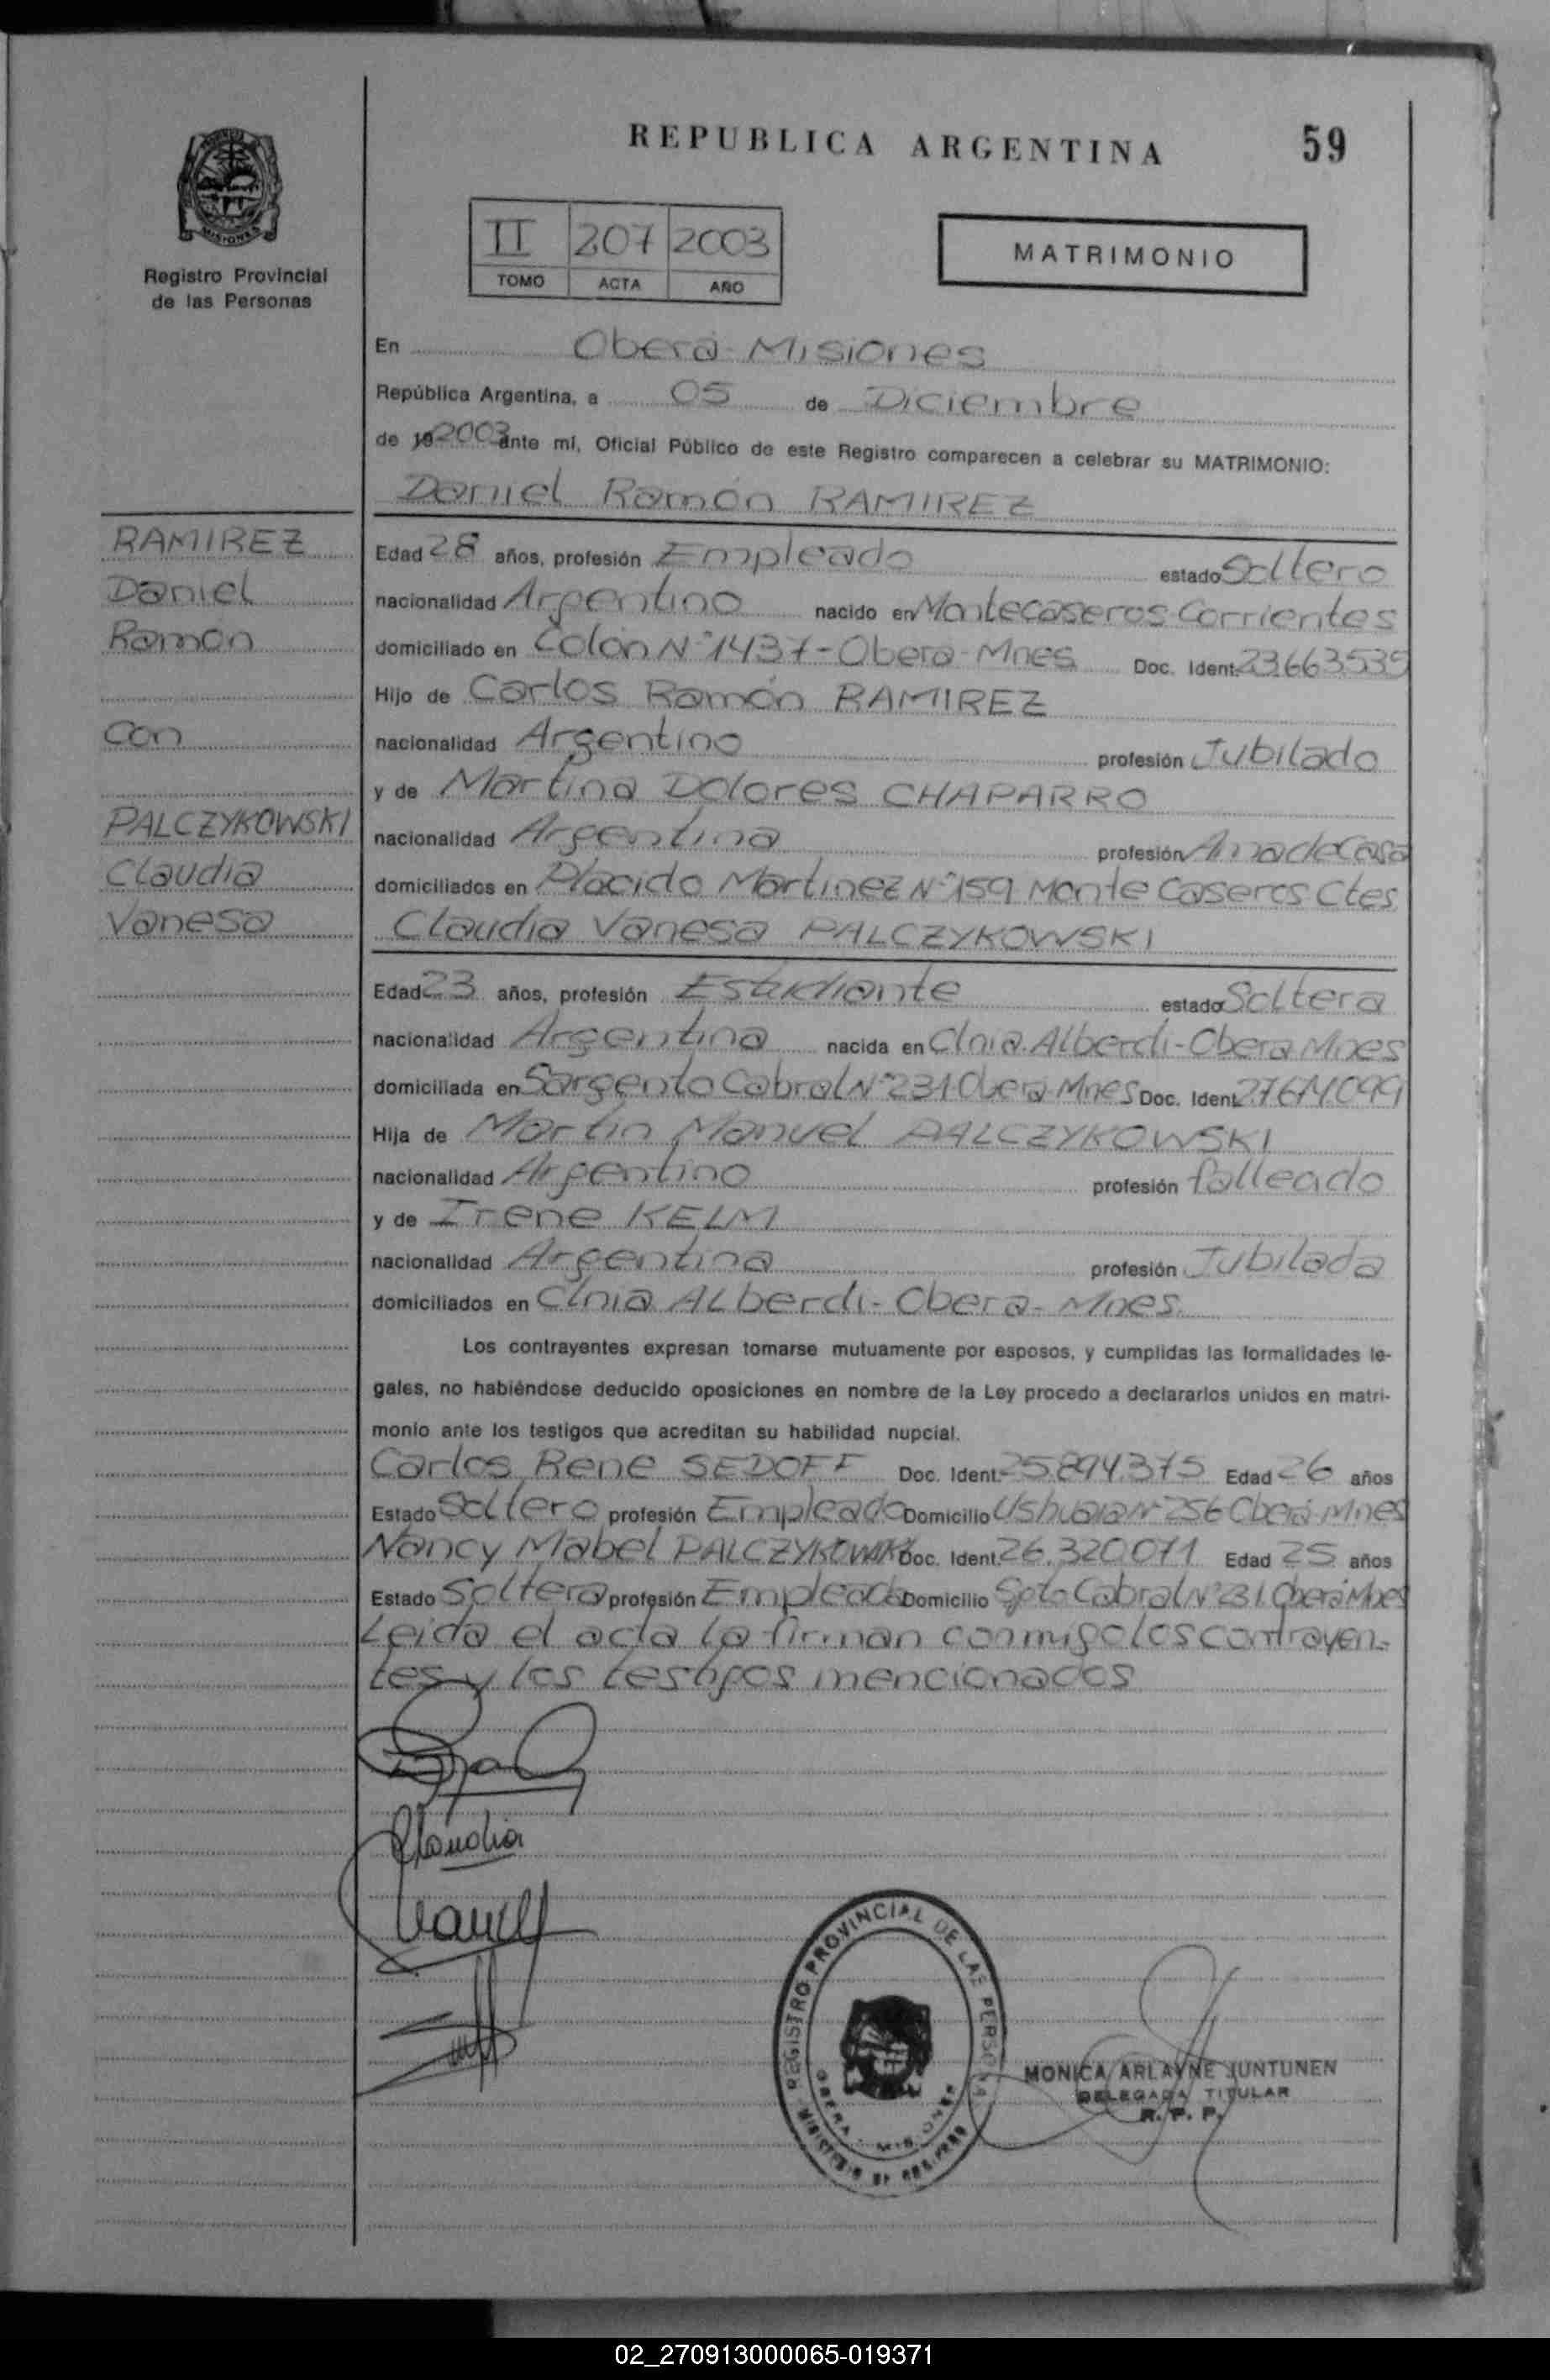 REPUBLICA ARGENTINA
59
MISIONES
Registro Provincial
de las Personas
II 207 2003
TOMO ACTA AÑO
MATRIMONIO
En Oberá-Misiones
República Argentina, a 05 de Diciembre
de 19 2003 ante mí, Oficial Público de este Registro comparecen a celebrar su MATRIMONIO:
Daniel Ramón RAMIREZ
RAMIREZ
Daniel
Ramón
con
PALCZYKOWSKI
Claudia
Vanesa
Edad 28 años, profesión Empleado estado Soltero
nacionalidad Argentino nacido en Montecaseros-Corrientes
domiciliado en Colón Nº1437-Oberá-Mnes Doc. Ident. 23.663.535
Hijo de Carlos Ramón RAMIREZ
nacionalidad Argentino profesión Jubilado
y de Martina Dolores CHAPARRO
nacionalidad Argentina profesión Ama de Casa
domiciliados en Placido Martinez Nº159 Monte Caseros-Ctes
Claudia Vanesa PALCZYKOWSKI
Edad 23 años, profesión Estudiante estado Soltera
nacionalidad Argentina nacida en Clnia. Alberdi-Oberá Mnes
domiciliada en Sargento Cabral Nº231 Oberá-Mnes Doc. Ident.
Hija de Martin Manuel PALCZYKOWSKI
nacionalidad Argentino profesión
y de Irene KELM
nacionalidad Argentina profesión Jubilada
domiciliados en Clnia ALberdi-Oberá-Mnes.
Los contrayentes expresan tomarse mutuamente por esposos, y cumplidas las formalidades le-
gales, no habiéndose deducido oposiciones en nombre de la Ley procedo a declararlos unidos en matri-
monio ante los testigos que acreditan su habilidad nupcial.
Carlos Rene SEDOFF Doc. Ident. 25.894.375 Edad 26 años
Estado Soltero profesión Empleado Domicilio Ushuaia Nº 256 Oberá-Mnes
Nancy Mabel PALCZYKOWSKI Doc. Ident. 26.320.071 Edad 25 años
Estado Soltera profesión Empleada Domicilio Sgto Cabral Nº231 Oberá Mnes
Leida el acta la firman conmigo los contrayen-
tes y los testigos mencionados
Claudia
REGISTRO PROVINCIAL DE LAS PERSONAS
OBERA - MISIONES
MONICA ARLAYNE JUNTUNEN
DELEGADA TITULAR
R. P. P.
02_270913000065-019371